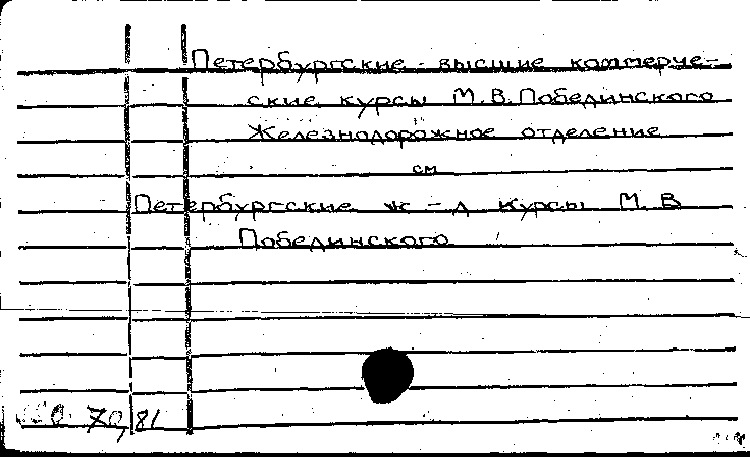 Петербургские высшие коммерче-
ские курсы М.В. Побединского
Железнодорожное отделение
см
Петербургские ж-д курсы М. В
Побединского
70,81